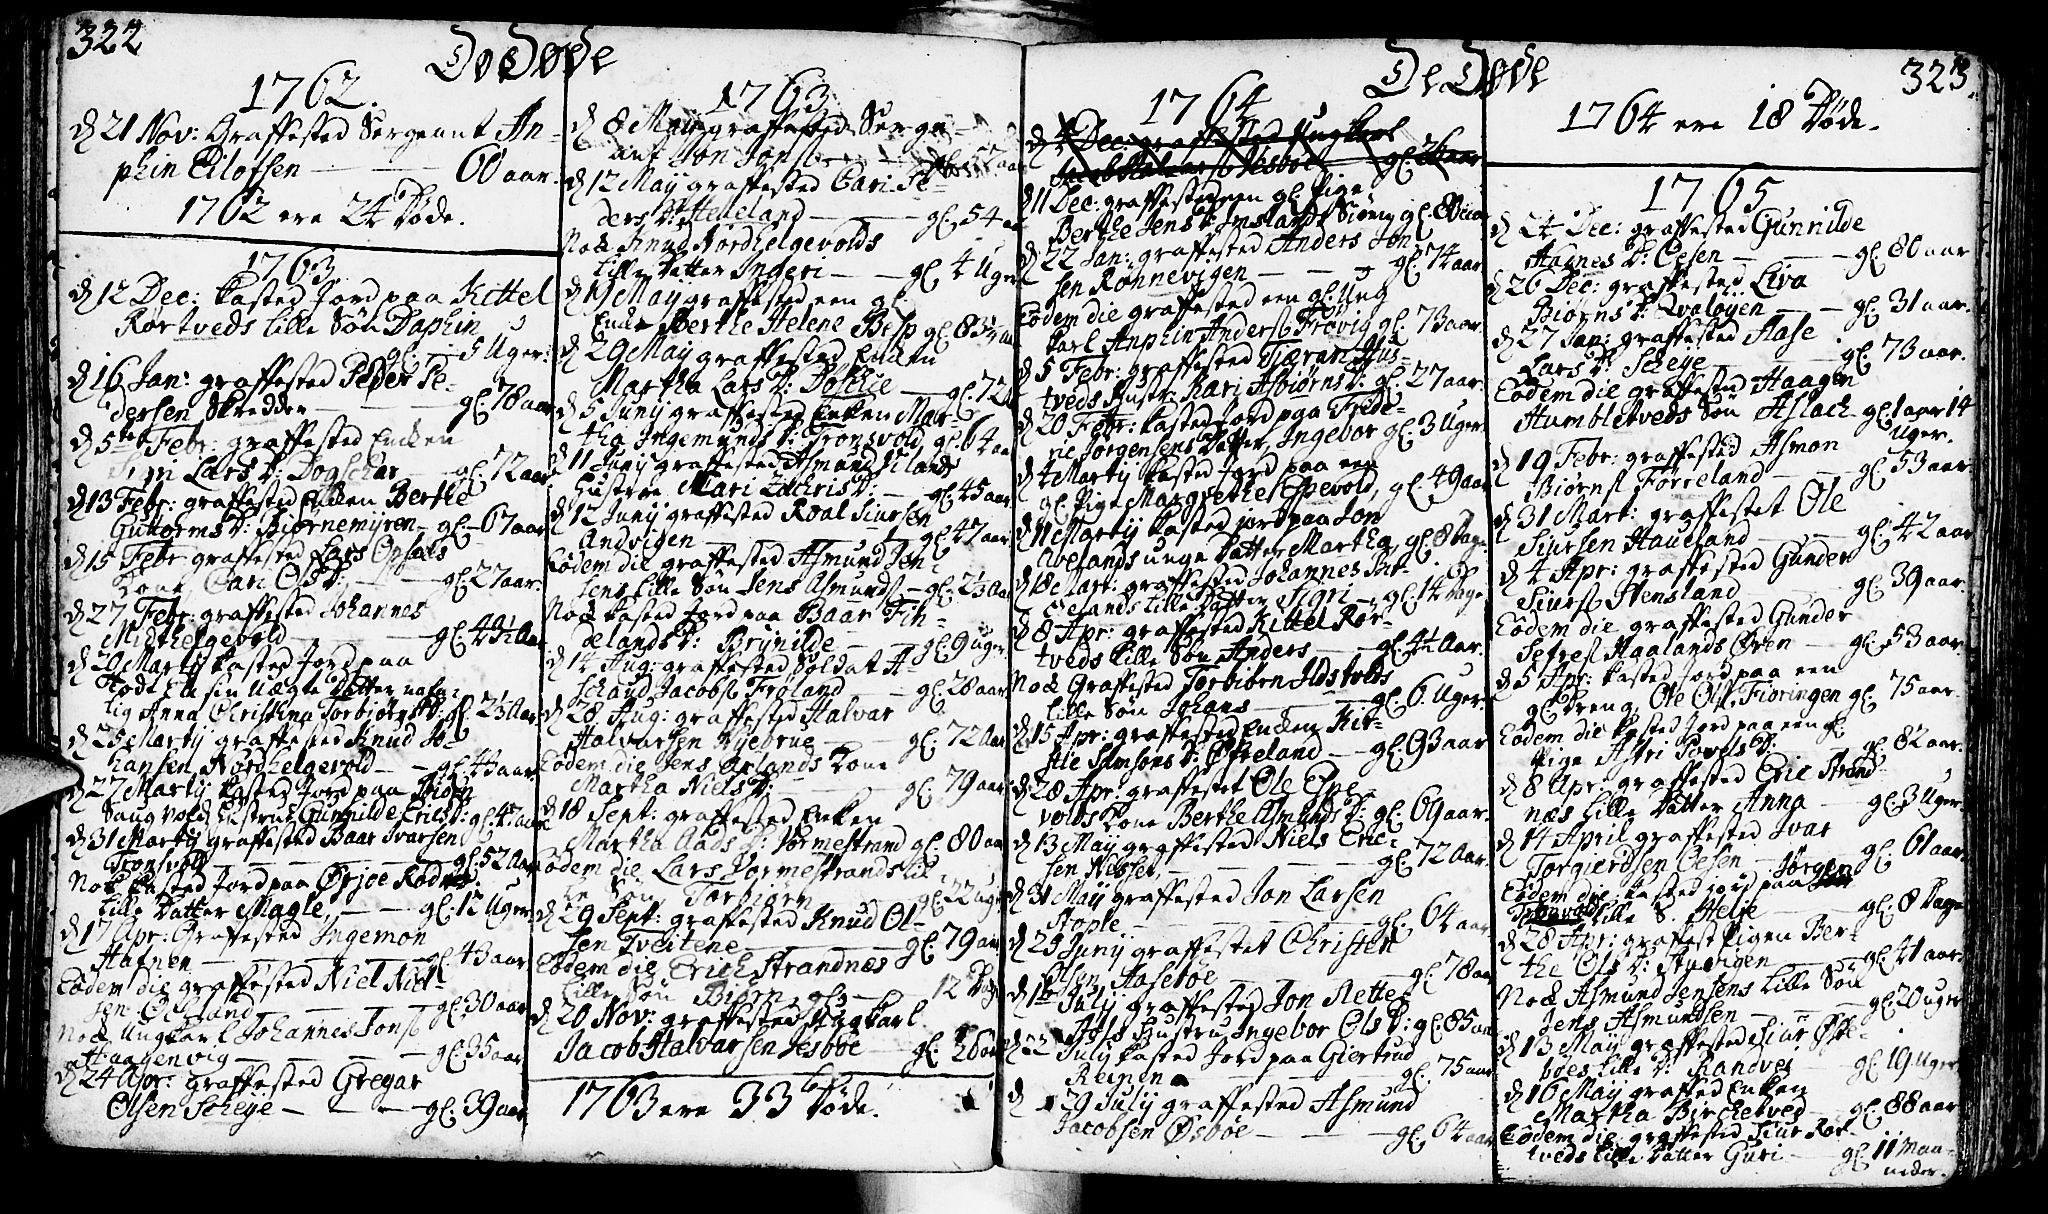 322
De Døde
1762.
d 21 Nov: Graffested Sergeant An-
phin Eilofsen — — 60 aar.
1762 ere 24 Døde.
1763
d 12 Dec: kasted Jord paa Kittel
Rørtveds lille Søn Daphin
gl. 5 Uger.
d 16 Jan: graffested Peder Pe-
dersen Skredder — gl. 78 aar
d 5te Febr: graffested Encken
Siri Lars D: Dogschar gl. 72 aar
d 13 Febr: graffested Encken Berthe
Guttorms D: Biørnemyren — gl. 67 aar
d 15 Febr graffested Lars Opsals
Kone, Cari Ols D: — gl. 27 aar.
d 27 Febr: graffested Johannes
Midthelgevold — gl. 49½ Aar
d 20 Martij kasted Jord paa
Anna Christina Torbiørns D: gl. 2½ Aar
d 25 Martij graffested Knud Jo-
hansen Nordhelgevold — gl. 44 aar
d 27 Martij kasted Jord paa
Saugvold, hustrue Gunhilde Erics D: gl. 47 aar
d 31 Martij graffested Baar Ivarsen
Tronsvold — gl. 52 Aar
Nok kasted Jord paa Ørjoe Rødne
lille Datter Magle, — gl. 12 Uger
d 17 Apr: Graffested Ingemon
Hafnen — gl. 43 aar
Eodem die graffested Niel Niel-
sen — gl. 30 aar
Nok Ungkarl Johannes Jons.
Haagenvig — gl. 35 aar
d 24 Apr: graffested Gregar
Olsen Scheje — gl. 39 aar
1763
d 8 Maij graffested Serge-
ant Jon Jons.
d 12 Maij graffested Cari Pe-
ders D: Helleland — gl. 54 aar
Nok Knud Nordhelgevolds
lille Datter Ingeri — gl. 4 Uger
d 19 Maij graffested een gl.
Enke Berthe Helene Besp gl. 83½ aar
d 29 Maij graffested Encken
Martha Lars D: Døschie — gl. 72
d 5 Junij graffested Encken Mar-
tha Ingemunds D: Tronsvold, gl. 64 aar
d 11 Junij graffested Asmund Vilands
Hustrue Mari Zachris D: — gl. 45 aar
d 12 Junij graffested Roal Siursen
Andvigen — gl. 47 aar
Eodem die graffested Asmund Jen-
sens lille Søn Jens Asmunds. — gl. 2½ Aar
Nok kasted Jord paa Baar Fin-
delands D: Brynilde — gl. 9 uger
d 14 Aug: graffested Soldat A-
schaud Jacobs. Frøland — gl. 28 aar
d 28 Aug: graffested Halvar
Halvarsen Nyebrue — gl. 72 Aar
Eodem die Jens Ørlands Kone
Martha Niels D: — gl. 79 aar
d 18 Sept: graffested Encken
Martha Aads D: Vormestrand gl. 80 aar
Eodem die Lars Vormestrands lil-
le Søn Torbiørn — gl. 22 uger
d 29 Sept: graffested Knud Ol-
sen Tveitene — gl. 79 aar
Eodem die Erich Strandnæs
lille Søn Biørn, gl. — 12 Dage
d 20 Nov: graffested Ungkarl
Jacob Halvarsen Jesbøe — gl. 26 aar
1763 ere 33 Døde.
De Døde
323
1764
d 4 Dec: graffested Ungkarl
Jacob Halvars. Jesbøe — gl. 26 aar
d 11 Dec: graffested een gl. Pige
Berthe Jens D: Imslands Siøen, gl. 80 aar
d 22 Jan: graffested Anders Jon
sen Rønnevigen — gl. 74 aar
Eodem die graffested een gl. Ung
karl Anphin Anders. Frøvig gl. 73 aar.
d 5 Febr: graffested Tjæran Hus-
tveds hustr: Kari Asbiørns D: gl. 27 aar.
d 20 Febr: kasted Jord paa Frede-
ric Jørgensens Datter, Ingebor gl. 3 Uger
d 4 Martij kasted Jord paa een
gl. Pige Margrethe Espevold, gl. 49 aar
d 11 Martij kasted jord paa Jon
Avelands unge Datter Martha, gl. 8 Dage
d 18 Mart: graffested Johannes
lille Datter Sigri — gl. 14 Dage
d 8 Apr: graffested Kittel Rør-
tveds lille Søn Anders — gl. 4½ Aar.
Nok Graffested Torbiørn Ildstveds
lille Søn Johans — gl. 6. Uger
d 15 Apr: graffested Encken Kir-
stie Samsons D: Øfreland — gl. 93 aar
d 28 Apr: graffestet Ole Espe-
volds Kone Berthe Asmunds D: gl. 69 aar.
d 13 Maij graffested Niels Eric-
sen Nibset, — gl. 72 Aar.
d 31 Maij graffested Jon Larsen
Stople — gl. 64 aar
d 25 Junij graffestet Christen
Olsen Aasebøe — gl. 78 aar
d 1te Julij graffested Jon Slette
Hustru Ingebor Ols D: gl. 85 aar
d 22 Julij kasted Jord paa Giertrud
Reinen — gl. 75 aar
d 29 Julij graffested Asmund
Jacobsen Øsbøe — gl. 64 aar
1764 ere 18 Døde.
1765
d 24 Dec: graffested Gunnilde
Aagnes D: Oesen — gl. 80 aar
d 26 Dec: graffested Liva
Biørns D: Qvaløyen — gl. 31 aar.
d 27 Jan: graffested Aase
Lars D: Scheje — gl. 73 aar.
Eodem die graffested Haagen
Humbletveds Søn Aslach — gl. 1 aar 14
Uger.
d 19 Febr: graffested Asmon
Biørns. Førreland — gl. 53 aar
d 31 Mart: graffestet Ole
Siursen Haueland — gl. 42 aar
d 4 Apr: graffested Gunder
Siurs. Stensland — gl. 39 aar
Eodem die graffested Gunder
Haalands Øren — gl. 53 aar
d 5 Apr: kasted Jord paa een
gl. Dreng, Ole Ols. Fioringen gl. 75 aar.
Eodem die kasted Jord paa een gl.
Pige Astri Povels D: — gl. 82 aar.
d 8 Apr: graffested Eric Strand-
næs lille Datter Anna — gl. 3 Uger.
d 14 April graffested Ivar
Torgierdsen Oesen — gl. 61 aar.
Eodem die kasted jord paa Jørgen
Tronsvolds lille S. Helje — gl. 8 Dage
d 28 Apr: graffest Pigen Ber-
the Ols D: — gl. 41 aar.
Nok Asmund Jensens lille Søn
Jens Asmundsen — gl. 20 uger
d 13 Maij graffested Siur
lille D: Randvei — gl. 19 Uger
d 16 Maij graffsted Encken
Martha Birchetved — gl. 88 aar
Eodem die: graffested Siur Rør-
tveds lille Datter Guri — gl. 11 maa-
neder.